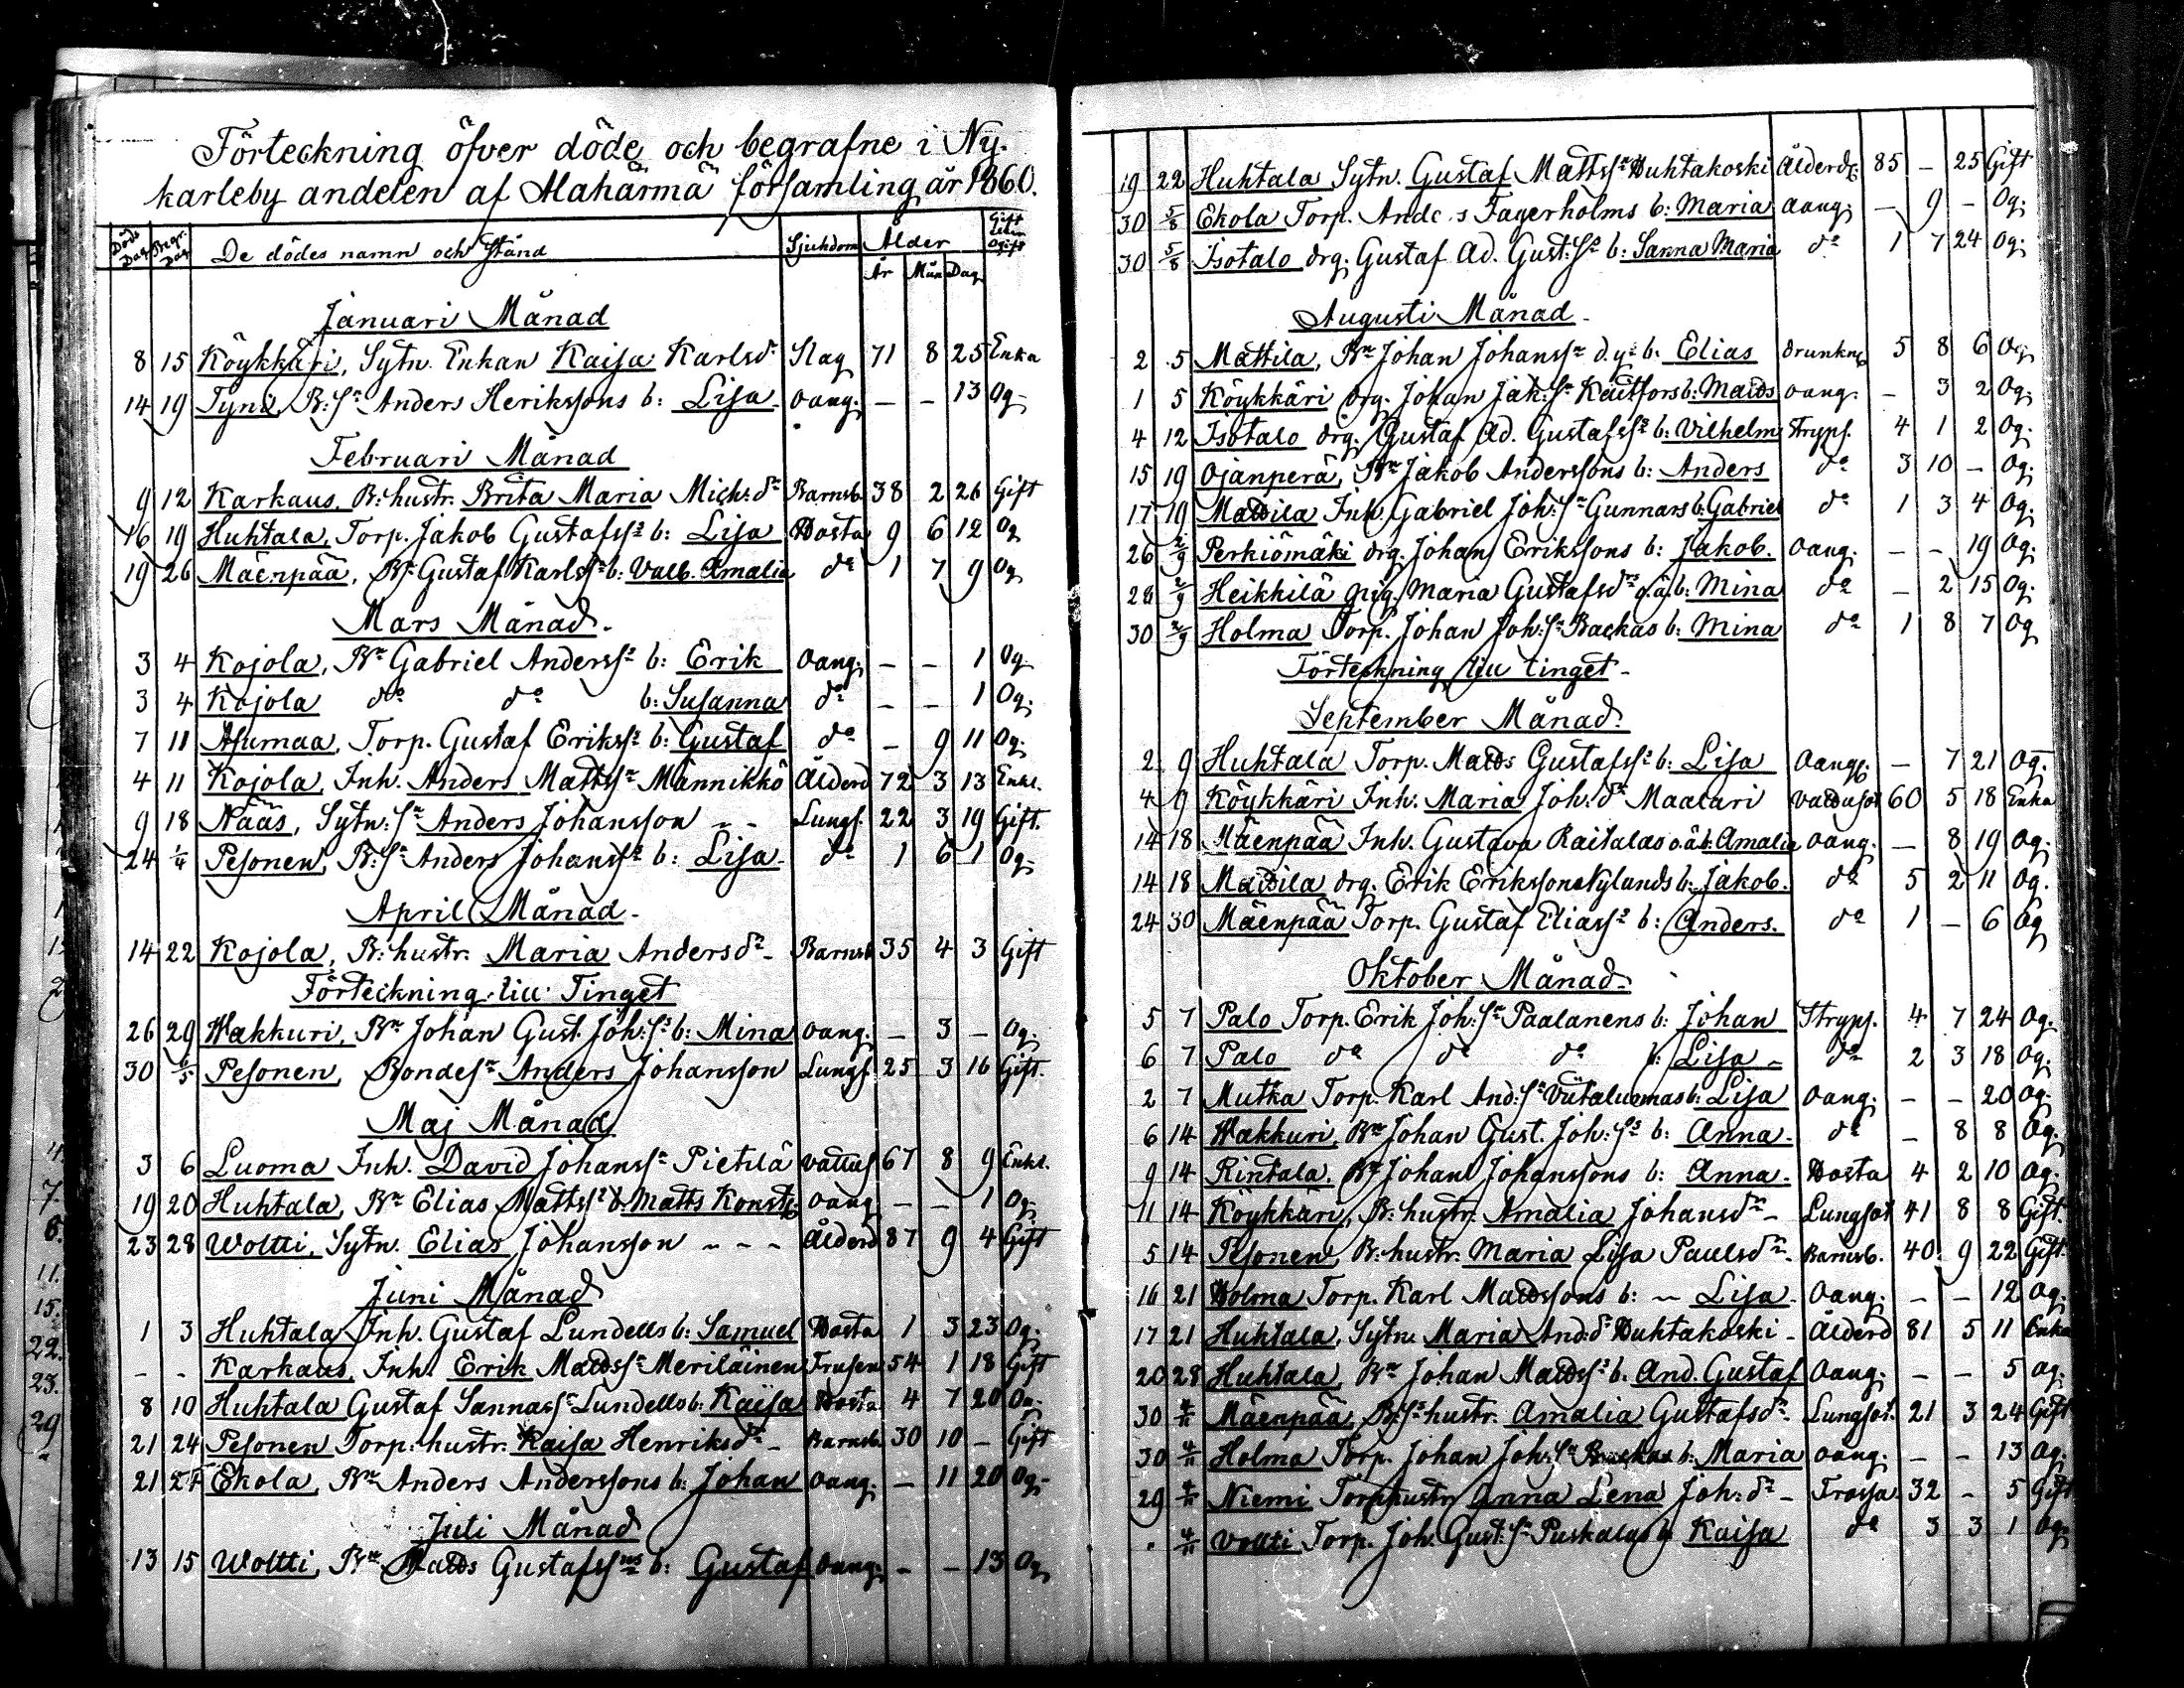 Förteckning öfver döde och begrafne i Ny-
karleby andelen af Alahärmä församling år 1860.
Döds Dag Begr. Dag De dödes namn och stånd Sjukdom Ålder År Mån Dag Gift Ogift
Januari Månad
8 15 Köykkäri, Sytn. Enkan Kaisa Karlsdr Slag 71 8 25 Enka
14 19 Tyni, B:sn Anders Herikssons b: Lisa oang. - - 13 Og-
Februari Månad
9 12 Karkaus, B:hustr. Brita Maria Mich:dr Barnsb. 38 2 26 Gift
16 19 Huhtala, Torp. Jakob Gustafss b: Lisa Hosta 9 6 12 Og
19 26 Mäenpää, Bn Gustaf Karlss b: Valb. Amalia do 1 7 9 Og
Mars Månad.
3 4 Kojola, Bn Gabriel Anderss b: Erik Oang. - - 1 Og
3 4 Kojola do do b: Susanna do - - 1 Og.
7 11 Asumaa, Torp. Gustaf Erikss b: Gustaf do - 9 11 Og.
4 11 Kojola, Inh. Anders Mattssn Männikkö Ålderd 72 3 13 Enkl.
9 18 Nääs, Sytn:sn Anders Johansson - - Lungs. 22 3 19 Gift.
24 1/4 Pesonen, B:sn Anders Johanss b: Lisa - do 1 6 1 Og-
April Månad.
14 22 Kojola, B:hustr. Maria Andersdr - Barnsb 35 4 3 Gift
Förteckning till Tinget
26 29 Wakkuri, Bn Johan Gust. Joh:ss b: Mina oang. - 3 - Og.
30 6/5 Pesonen, Bondesn Anders Johansson Lungs 25 3 16 Gift.
Maj Månad
3 6 Luoma Inh. David Johanssn Pietilä vattus 67 8 9 Enkl.
19 20 Huhtala, Bn Elias Mattss b. Matts Konst. oang - - 1 Og.
23 28 Woltti, Sytn. Elias Johansson - - - Ålderd 87 9 4 Gift
Juni Månad
1 3 Huhtala Inh. Gustaf Lundells b: Samuel Hosta 1 3 23 Og.
- - Karkaus, Inh. Erik Mattssn Meriläinen Frusen 54 1 18 Gift
8 10 Huhtala Gustaf Sannass Lundells b: Kaisa Hosta 4 7 20 Og.
21 24 Pesonen Torp:hustr. Kaisa Henriksdr - Barnsb. 30 10 - Gift
21 27 Ekola, Bn Anders Anderssons b: Johan oang. - 11 20 Og-
Juli Månad
13 15 Woltti, Bn Matts Gustafssns b: Gustaf oang. - - 13 Og
19 22 Huhtala Sytn. Gustaf Mattssn Huhtakoski Ålderds. 85 - 25 Gift
30 5/8 Ekola Torp. Anders Fagerholms b: Maria oang. - 9 - Og.
30 5/8 Isotalo drg. Gustaf Ad. Gust:ss b: Sanna Maria do 1 7 24 Og.
Augusti Månad.
2 5 Mattila, Bn Johan Johanssn d.y. b. Elias drunkng 5 8 6 Og.
1 5 Köykkäri drg. Johan Jak:sn Kältfors b: Matts oang. - 3 2 Og.
4 12 Isotalo drg. Gustaf Ad. Gustafss b: Vilhelm Stryps. 4 1 2 Og.
15 19 Ojanperä, Bn Jakob Anderssons b: Anders do 3 10 - Og.
17 19 Mattila Inh. Gabriel Joh:sn Gunnars b: Gabriel do 1 3 4 Og.
26 2/9 Perkiömäki drg. Johan Erikssons b: Jakob. Oang. - - 19 Og.
28 2/9 Heikkilä pig. Maria Gustafsdrs o.ä. b: Mina do - 2 15 Og.
30 2/9 Holma Torp. Johan Joh:sn Backas b: Mina do 1 8 7 Og
Förteckning till tinget -
September Månad.
2 9 Huhtala Torp. Matts Gustafss b: Lisa Oang. - 7 21 Og-
4 9 Köykkäri Inh. Maria Joh:dr Maatari vattusot 60 5 18 Enka
14 18 Mäenpää Inh. Gustava Raitalas o.ä. b. Amalia oang. - 8 19 Og.
14 18 Mattila drg. Erik Eriksson Nylunds b: Jakob. do 5 2 11 Og.
24 30 Mäenpää Torp. Gustaf Eliass b: Anders. do 1 - 6 Og
Oktober Månad.
5 7 Palo Torp. Erik Joh:sn Paalanens b: Johan Stryps. 4 7 24 Og-
6 7 Palo do do do b: Lisa - do 2 3 18 Og.
2 7 Mutka Torp. Karl And:sn Viitaluomas b: Lisa Oang. - - 20 Og.
6 14 Wakkuri, Bn Johan Gust. Joh:ss b: Anna. do - 8 8 Og.
9 14 Rintala. Bn Johan Johanssons b: Anna. Hosta 4 2 10 Og.
11 14 Köykkäri, B:hustr. Amalia Johansdr - Lungsot 41 8 8 Gift.
5 14 Pesonen, B:hustr. Maria Lisa Paulsdr - Barnsb. 40 9 22 Gift.
16 21 Holma Torp. Karl Mattssons b: - Lisa. Oang. - - 12 Og.
17 21 Huhtala, Sytn. Maria And:dr Huhtakoski - Ålderd 81 5 11 Enka
20 28 Huhtala, Bn Johan Mattss b. And. Gustaf Oang. - - 5 og.
30 4/11 Mäenpää, B:ss hustr. Amalia Gustafsdr. Lungsot. 21 3 24 Gift
30 4/11 Holma Torp. Johan Joh:sn Backas b: Maria oang. - - 13 Og.
29 4/11 Niemi Torp:hustr Anna Lena Joh:dr - Frossa. 32 - 5 Gift
. 4/11 Voltti Torp. Joh. Gust:sn Puskalas b Kaisa do 3 3 1 Og.